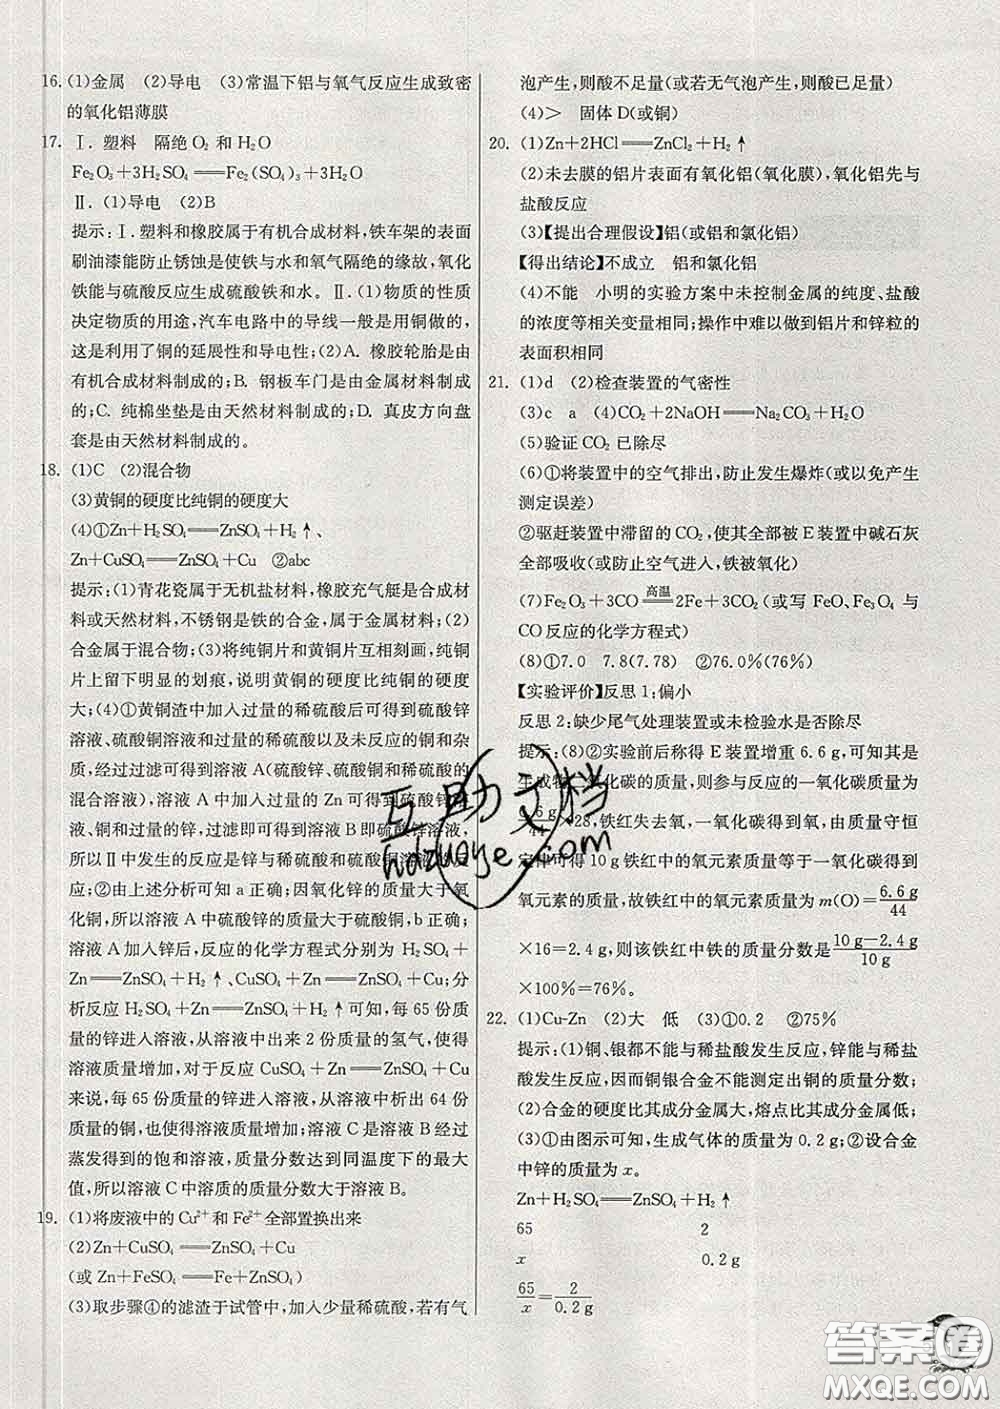 16. (1)金属　(2)导电　(3)常温下铝与氧气反应生成致密
的氧化铝薄膜
17. Ⅰ. 塑料　隔绝O₂ 和 H₂O
Fe₂O₃+3H₂SO₄══Fe₂(SO₄)₃+3H₂O
Ⅱ. (1)导电　(2)B
提示:Ⅰ.塑料和橡胶属于有机合成材料,铁车架的表面
刷油漆能防止锈蚀是使铁与水和氧气隔绝的缘故,氧化
铁能与硫酸反应生成硫酸铁和水。Ⅱ.(1)物质的性质
决定物质的用途,汽车电路中的导线一般是用铜做的,
这是利用了铜的延展性和导电性;(2)A. 橡胶轮胎是由
有机合成材料制成的;B. 钢板车门是由金属材料制成
的;C. 纯棉坐垫是由天然材料制成的;D. 真皮方向盘
套是由天然材料制成的。
18. (1)C　(2)混合物
(3)黄铜的硬度比纯铜的硬度大
(4)①Zn+H₂SO₄══ZnSO₄+H₂↑、
Zn+CuSO₄══ZnSO₄+Cu　②abc
提示:(1)青花瓷属于无机盐材料,橡胶充气艇是合成材
料或天然材料,不锈钢是铁的合金,属于金属材料;(2)
合金属于混合物;(3)将纯铜片和黄铜片互相刻画,纯铜
片上留下明显的划痕,说明黄铜的硬度比纯铜的硬度
大;(4)①黄铜渣中加入过量的稀硫酸后可得到硫酸锌
溶液、硫酸铜溶液和过量的稀硫酸以及未反应的铜和杂
质,经过过滤可得到溶液A(硫酸锌、硫酸铜和稀硫酸的
混合溶液),溶液A中加入过量的Zn可得到硫酸锌溶
液、铜和过量的锌,过滤即可得到溶液B即硫酸锌溶液,
所以Ⅱ中发生的反应是锌与稀硫酸和硫酸铜溶液的反
应;②由上述分析可知a正确;因氧化锌的质量大于氧
化铜,所以溶液A中硫酸锌的质量大于硫酸铜,b正确;
溶液A加入锌后,反应的化学方程式分别为 H₂SO₄+
Zn══ZnSO₄+H₂↑、CuSO₄+Zn══ZnSO₄+Cu;分
析反应 H₂SO₄+Zn══ZnSO₄+H₂↑可知,每65份质量
的锌进入溶液,从溶液中出来2份质量的氢气,使得溶
液质量增加,对于反应 CuSO₄+Zn══ZnSO₄+Cu
来说,每65份质量的锌进入溶液,从溶液中析出64份
质量的铜,也使得溶液质量增加;溶液C是溶液B经过
蒸发得到的饱和溶液,质量分数达到同温度下的最大
值,所以溶液C中溶质的质量分数大于溶液B。
19. (1)将废液中的Cu²⁺和Fe²⁺全部置换出来
(2)Zn+CuSO₄══ZnSO₄+Cu
(或Zn+FeSO₄══Fe+ZnSO₄)
(3)取步骤④的滤渣于试管中,加入少量稀硫酸,若有气
泡产生,则酸不足量(或若无气泡产生,则酸已足量)
(4)>　固体D(或铜)
20. (1)Zn+2HCl══ZnCl₂+H₂↑
(2)未去膜的铝片表面有氧化铝(氧化膜),氧化铝先与
盐酸反应
(3)【提出合理假设】铝(或铝和氯化铝)
【得出结论】不成立　铝和氯化铝
(4)不能　小明的实验方案中未控制金属的纯度、盐酸
的浓度等相关变量相同;操作中难以做到铝片和锌粒的
表面积相同
21. (1)d　(2)检查装置的气密性
(3)c　a　(4)CO₂+2NaOH══Na₂CO₃+H₂O
(5)验证CO₂ 已除尽
(6)①将装置中的空气排出,防止发生爆炸(或以免产生
测定误差)
②驱赶装置中滞留的CO₂,使其全部被E装置中碱石灰
全部吸收(或防止空气进入,铁被氧化)
(7)Fe₂O₃+3CO══高温══2Fe+3CO₂(或写 FeO、Fe₃O₄ 与
CO反应的化学方程式)
(8)①7.0　7.8(7.78)　②76.0%(76%)
【实验评价】反思1:偏小
反思2:缺少尾气处理装置或未检验水是否除尽
提示:(8)②实验前后称得E装置增重6.6 g,可知其是
生成物二氧化碳的质量,则参与反应的一氧化碳质量为
6.6 g/44×28,铁红失去氧,一氧化碳得到氧,由质量守恒
定律可得10 g铁红中的氧元素质量等于一氧化碳得到
氧元素的质量,故铁红中的氧元素质量为 m(O)=6.6 g/44
×16=2.4 g,则该铁红中铁的质量分数是(10 g−2.4 g)/10 g
×100%=76%。
22. (1)Cu-Zn　(2)大　低　(3)①0.2　②75%
提示:(1)铜、银都不能与稀盐酸发生反应,锌能与稀盐
酸发生反应,因而铜银合金不能测定出铜的质量分数;
(2)合金的硬度比其成分金属大,熔点比其成分金属低;
(3)①由图示可知,生成气体的质量为0.2 g;②设合金
中锌的质量为 x。
Zn+H₂SO₄══ZnSO₄+H₂↑
65　2
x　0.2 g
65/x=2/0.2 g
互助文档
hdzuoye.com
答案圈
MXQE.COM